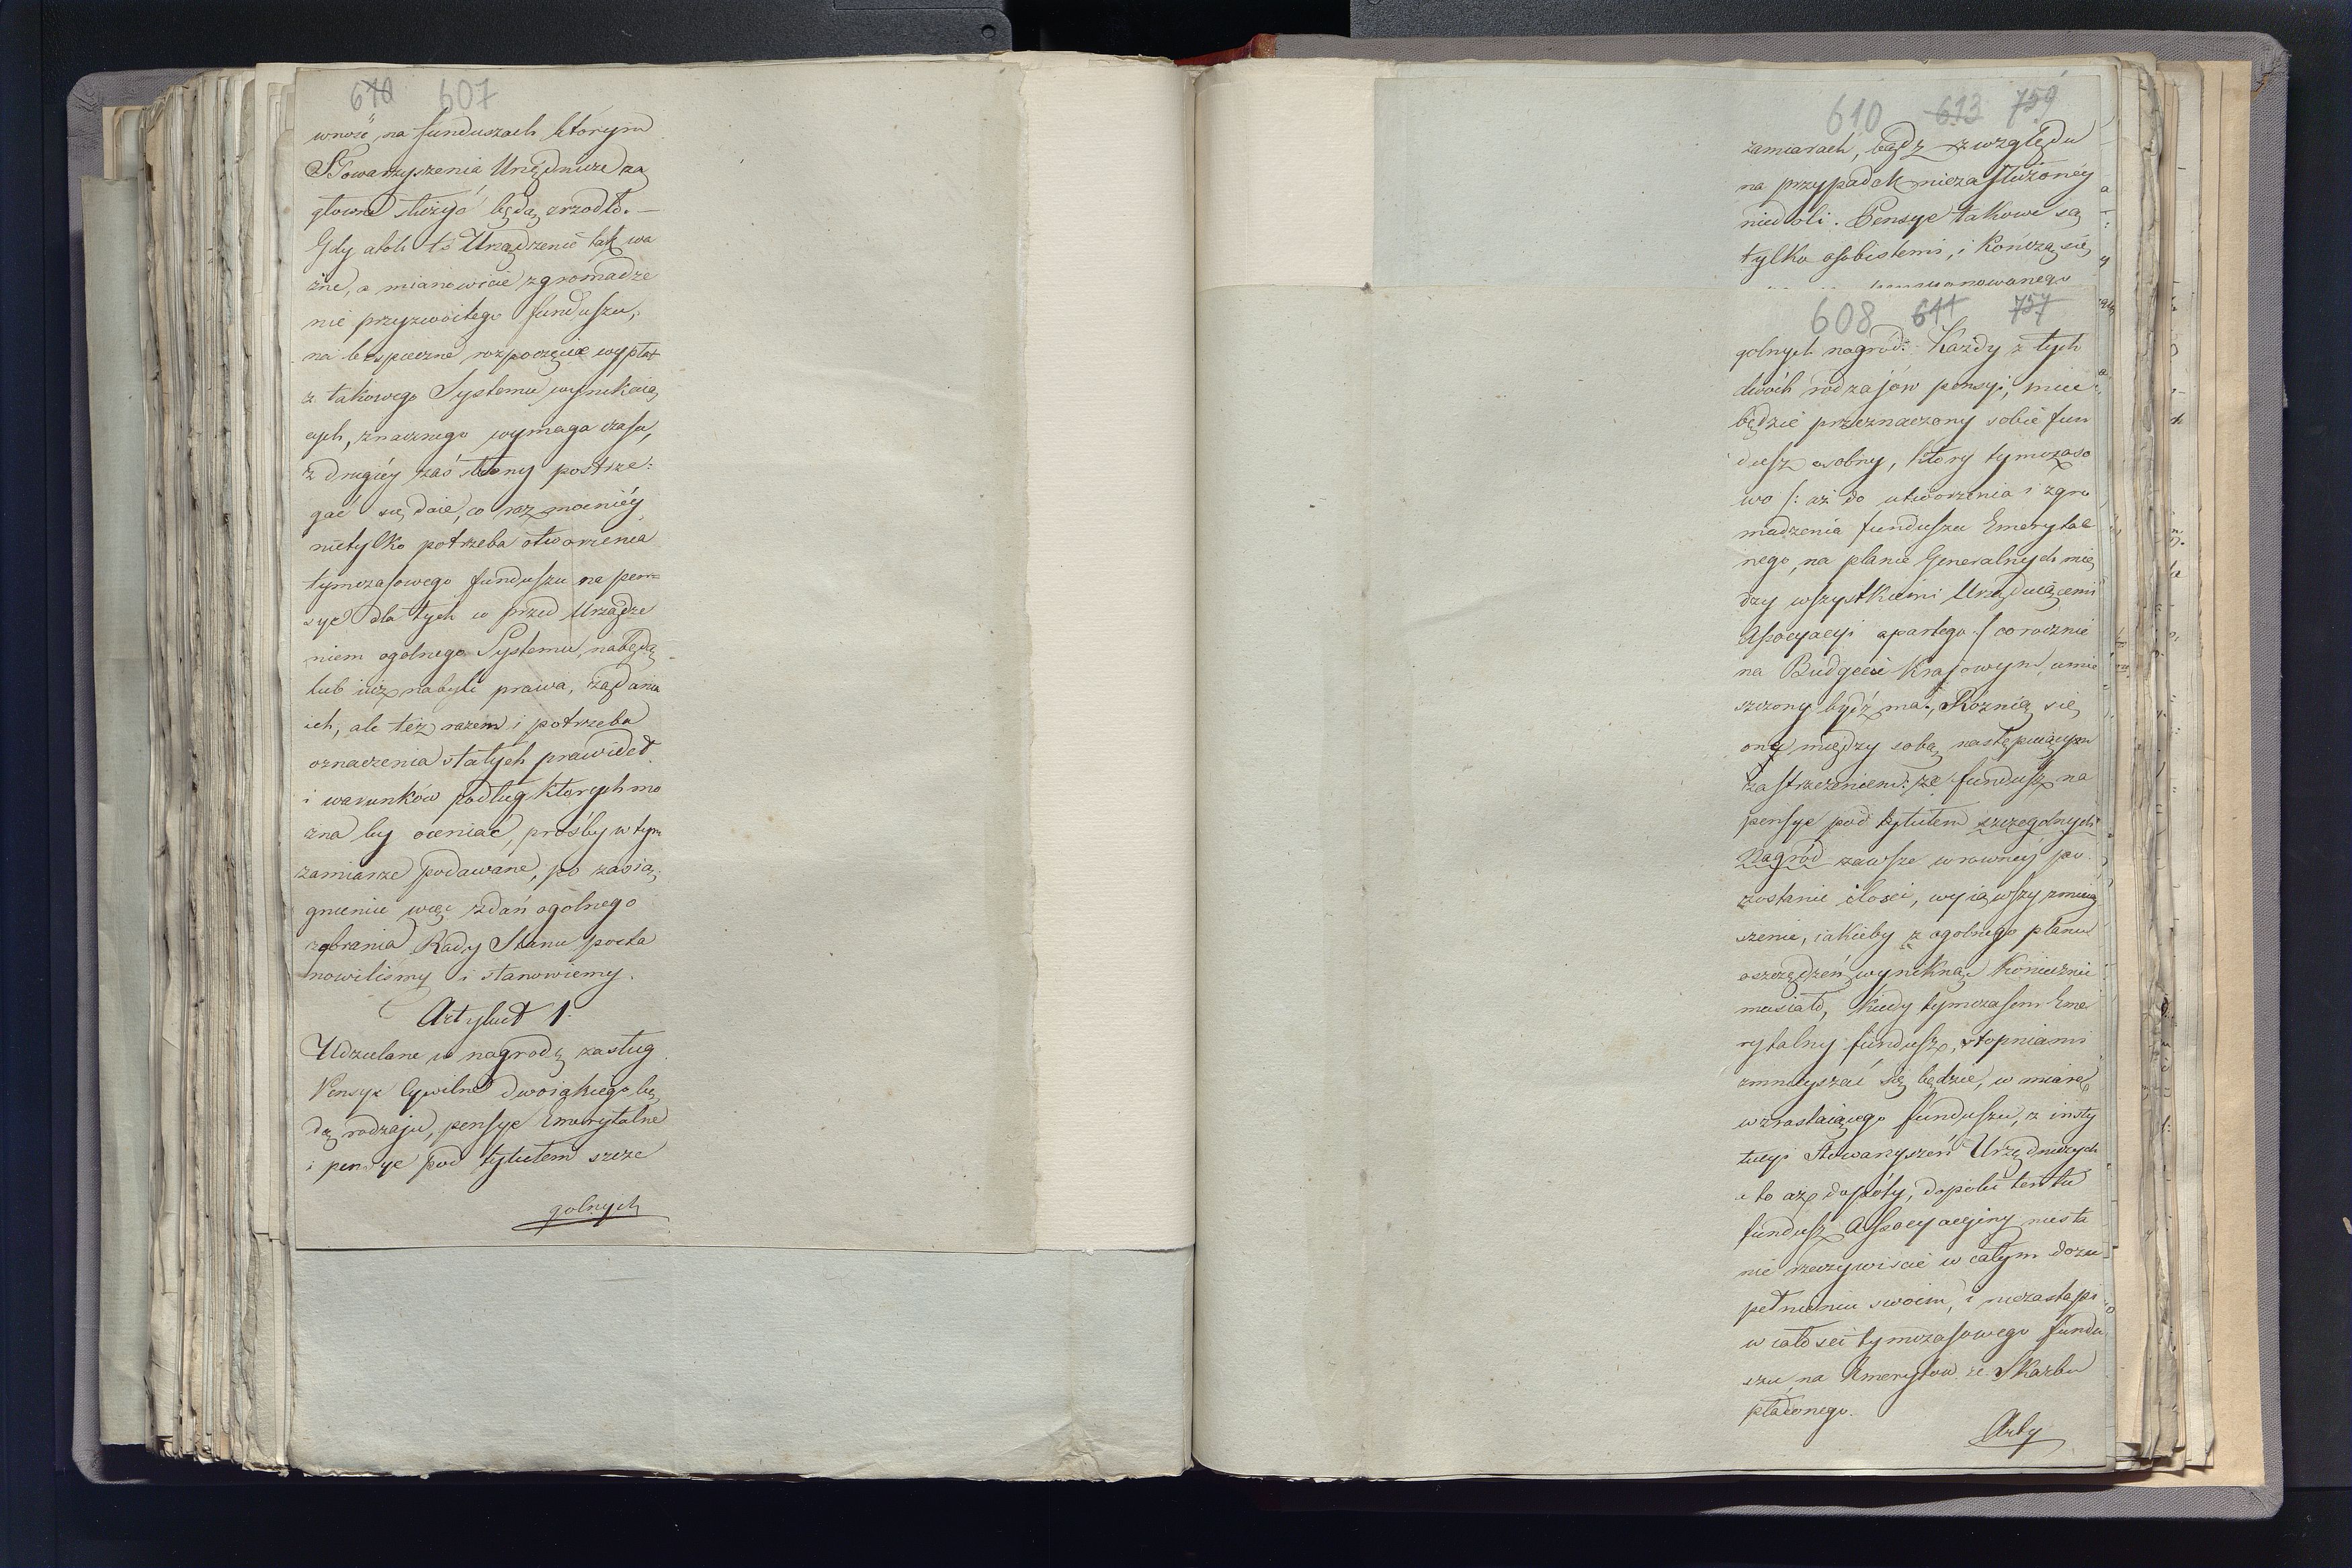 610 607
wność na funduszach którym
Stowarzyszenia Urzędnicze za
głowne służyć będą źrzodło. —
Gdy atoli to Urządzenie tak wa
żne, a mianowicie zgromadze
nie przyzwoitego funduszu,
na bezpieczne rozpoczęcie wypłat
z takowego Systemu wynikaią
cych, znacznego wymaga czasu,
z drugiéy zaś strony postrze:
gać się daie, co raz mocniéy
nietylko potrzeba otworzenia
tymczasowego funduszu na pen=
sye dla tych co przed Urządze
niem ogolnego Systemu, nabędą
lub iuż nabyli prawa, żądania
ich, ale też razem i potrzeba
oznaczenia stałych prawideł
i warunków podług których mo
żna by oceniać, prośby w tym
zamiarze podawane, po zasią:
gnieniu więc zdań ogolnego
zebrania Rady Stanu posta
nowiliśmy i stanowiemy.
Artykuł 1.
Udzielane w nagrodę zasług
Pensye Cywilne dwoiakiego bę
dą rodzaju, pensye Emerytalne
i pensye pod tytułem szcze
golnych
610 613 759
zamiarach, bądz z względu
na przypadek niezasłużonéy
niedoli. Pensye takowe są
tylko osobistemi, i kończą się
pensyonowanego
608 611 757
golnych nagród: Każdy z tych
dwóch rodzajów pensyi, mieć
będzie przeznaczony sobie fun
dusz osobny, który tymczaso
wo /: aż do utworzenia i zgro
madzenia funduszu Emerytal
nego, na planie Generalnych mię
dzy wszystkiemi Urzęduiącemi
Assocyacyi opartego :/ corocznie
na Budgecie Krajowym, umie
szczony bydź ma. Różnią się
one między sobą następuiącym
zastrzeżeniem: że fundusz na
pensye pod tytułem szczegolnych
Nagród zawsze w rowney po
zostanie ilości, wyiąwszy zmniey
szenie, iakieby z ogolnego planu
oszczędzeń wyniknąć koniecznie
musiało, kiedy tymczasem Eme
rytalny fundusz, stopniami
zmnieyszać się będzie, w miarę
wzrastaiącego funduszu, z insty
tucyi Stowarzyszeń Urzędniczych
a to aż dopóty, dopóki ten tu
fundusz Assocyacyiny niesta
nie rzeczywiscie w całym dozu
pełnieniu swoim, i niezastąpi
w całości tymczasowego fundu
szu na Emerytów ze Skarbu
płaconego.
Arty